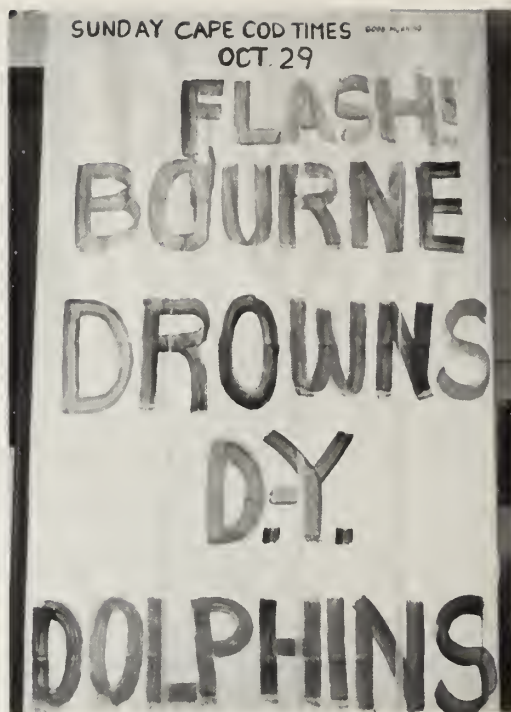 SUNDAY CAPE COD TIMES GOOD MORNING
OCT. 29
FLASH!
BOURNE
DROWNS
D.-Y.
DOLPHINS